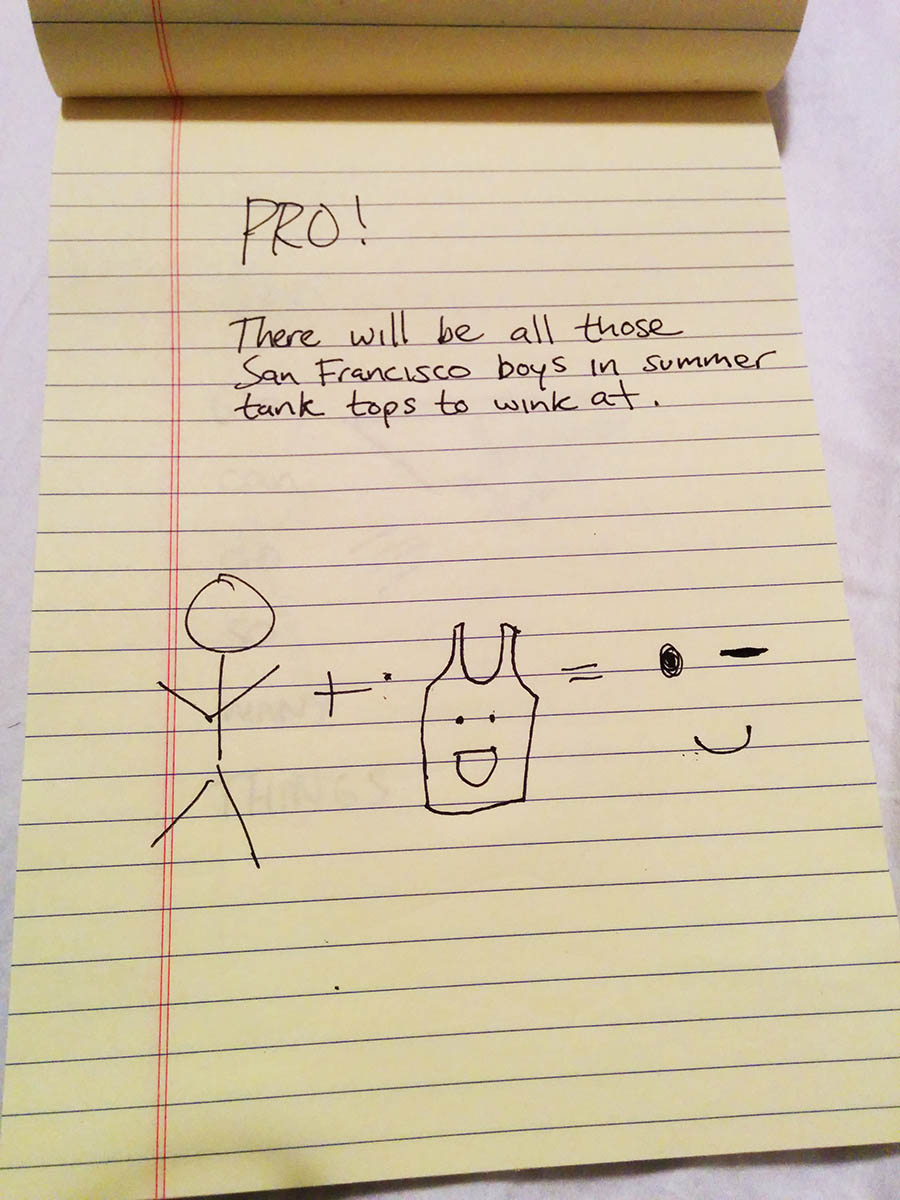 PRO!
There will be all those
San Francisco boys in summer
tank tops to wink at.
+ =